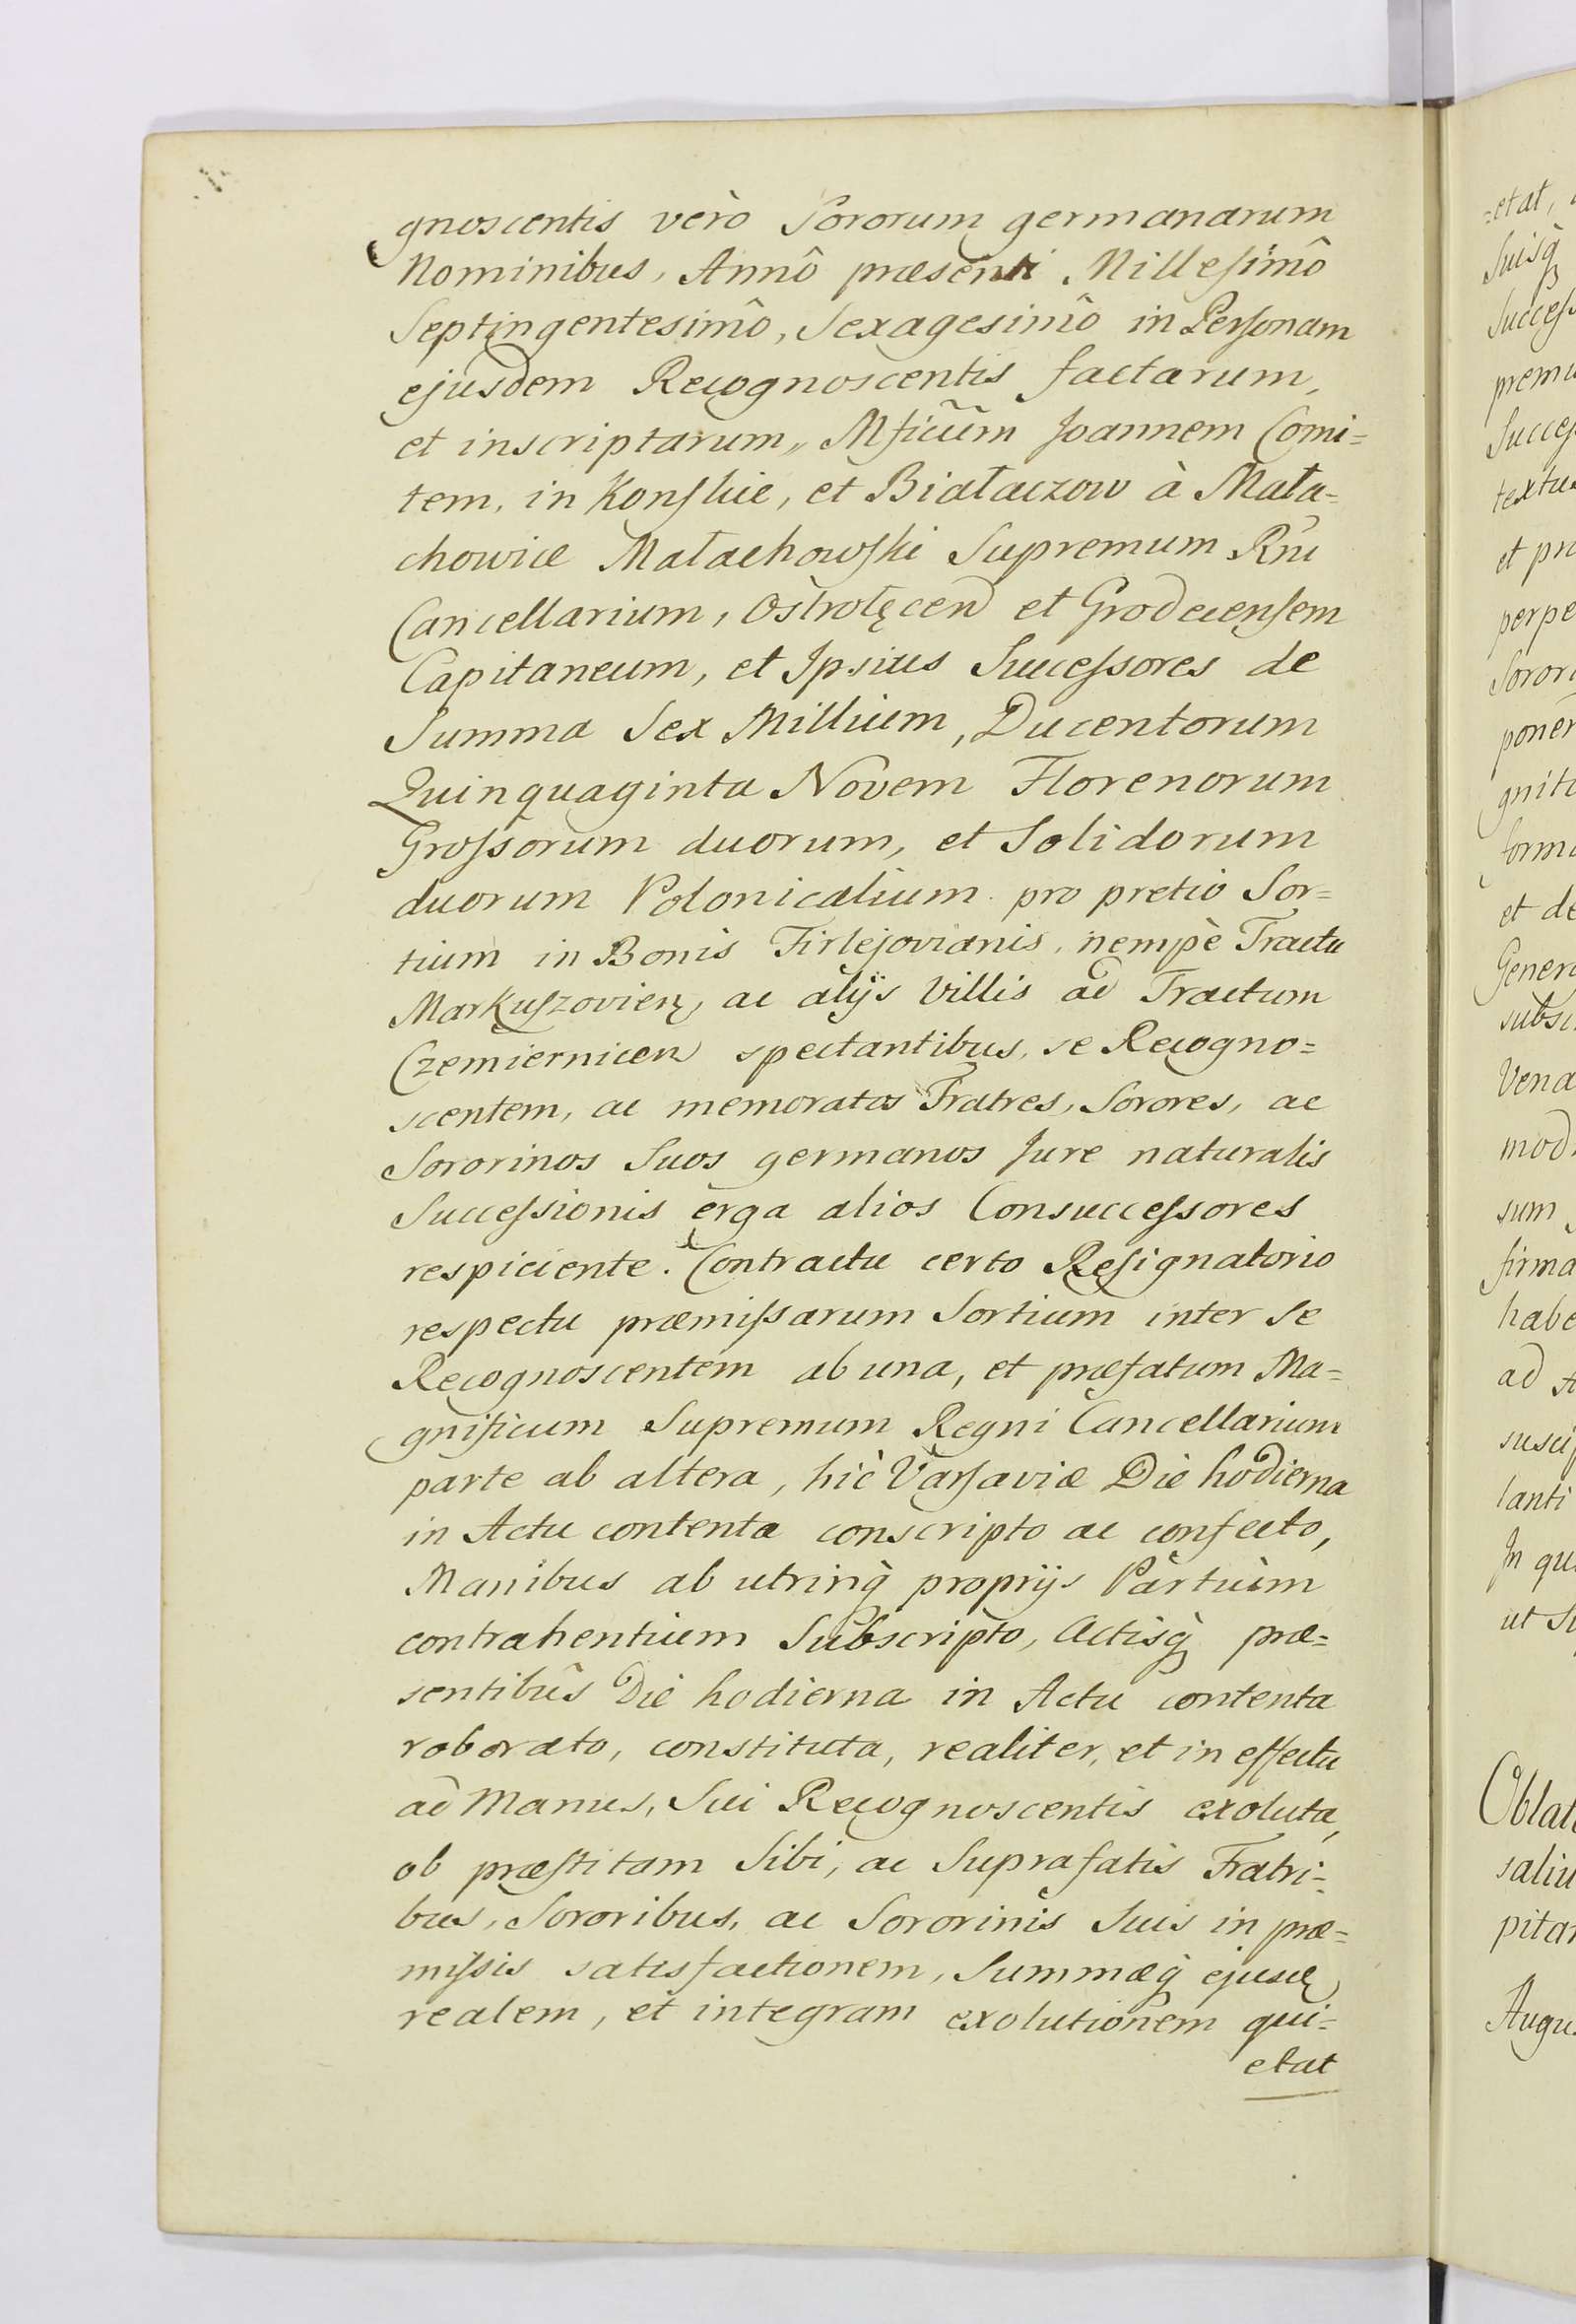 gnoscentis verò Sororum germanarum
Nominibus, Annô præsenti Millesimô
Septingentesimô, Sexagesimô in Personam
ejusdem Recognoscentis factarum,
et inscriptarum,, Mficum Joannem Comi=
tem, in Konskie, et Białaczow à Mała=
chowice Małachowski Supremum Rni
Cancellarium, Ostrołęcen et Grodecensem
Capitaneum, et Ipsius Successores de
Summa Sex Millium, Ducentorum
Quinquaginta Novem Florenorum
Grossorum duorum, et Solidorum
duorum Polonicalium pro pretio Sor=
tium in Bonis Firlejovianis, nempè Tractu
Markuszovien, ac alijs Villis ad Tractum
Czemiernicen spectantibus, se Recogno=
scentem, ac memoratos Fratres, Sorores, ac
Sororinos Suos germanos Jure naturalis
Successionis erga alios Consuccessores
respiciente. Contractu certo Resignatorio
respectu præmissarum Sortium inter Se
Recognoscentem ab una, et præfatum Ma=
gnificum Supremum Regni Cancellarium
parte ab altera, hic Varsaviæ Die hodierna
in Actu contenta conscripto ac confecto,
Manibus ab utrinq̀ proprijs Partium
contrahentium Subscripto, Actisq̀ præ=
sentibus Die hodierna in Actu contenta
roborato, constituta, realiter, et in effectu
ad Manus, Sui Recognoscentis exoluta,
ob præstitam Sibi, ac Suprafatis Fratri=
bus, Sororibus, ac Sororinis Suis in præ=
missis satisfactionem, Summæq̀ ejusd
realem, et integram exolutionem qui=
etat
=etat,
Suisq̀
Success
premu
Success
textu
et pr
perpe
Soror
poner
gnit
form
et de
Gener
subsc
Vena
mod
sum
firma
habe
ad
suscip
lanti
In qu
ut Su
Oblat
saliu
pitan
Augu